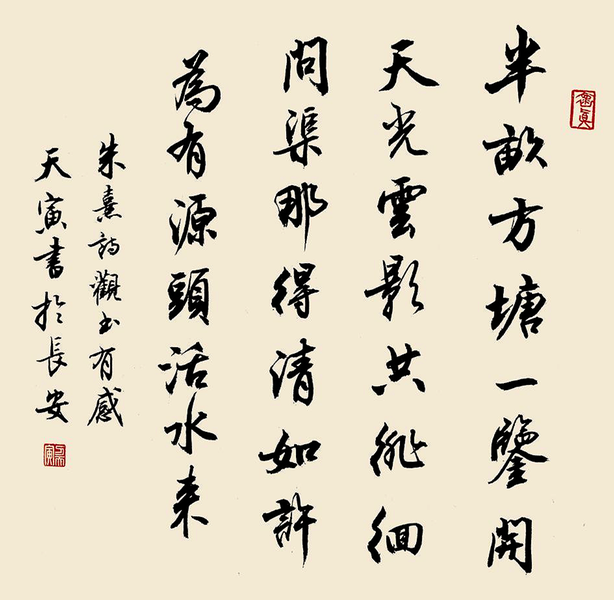 半畝方塘一鑒開
天光雲影共徘徊
問渠那得清如許
為有源頭活水来
朱熹詩觀书有感
天寅書於長安